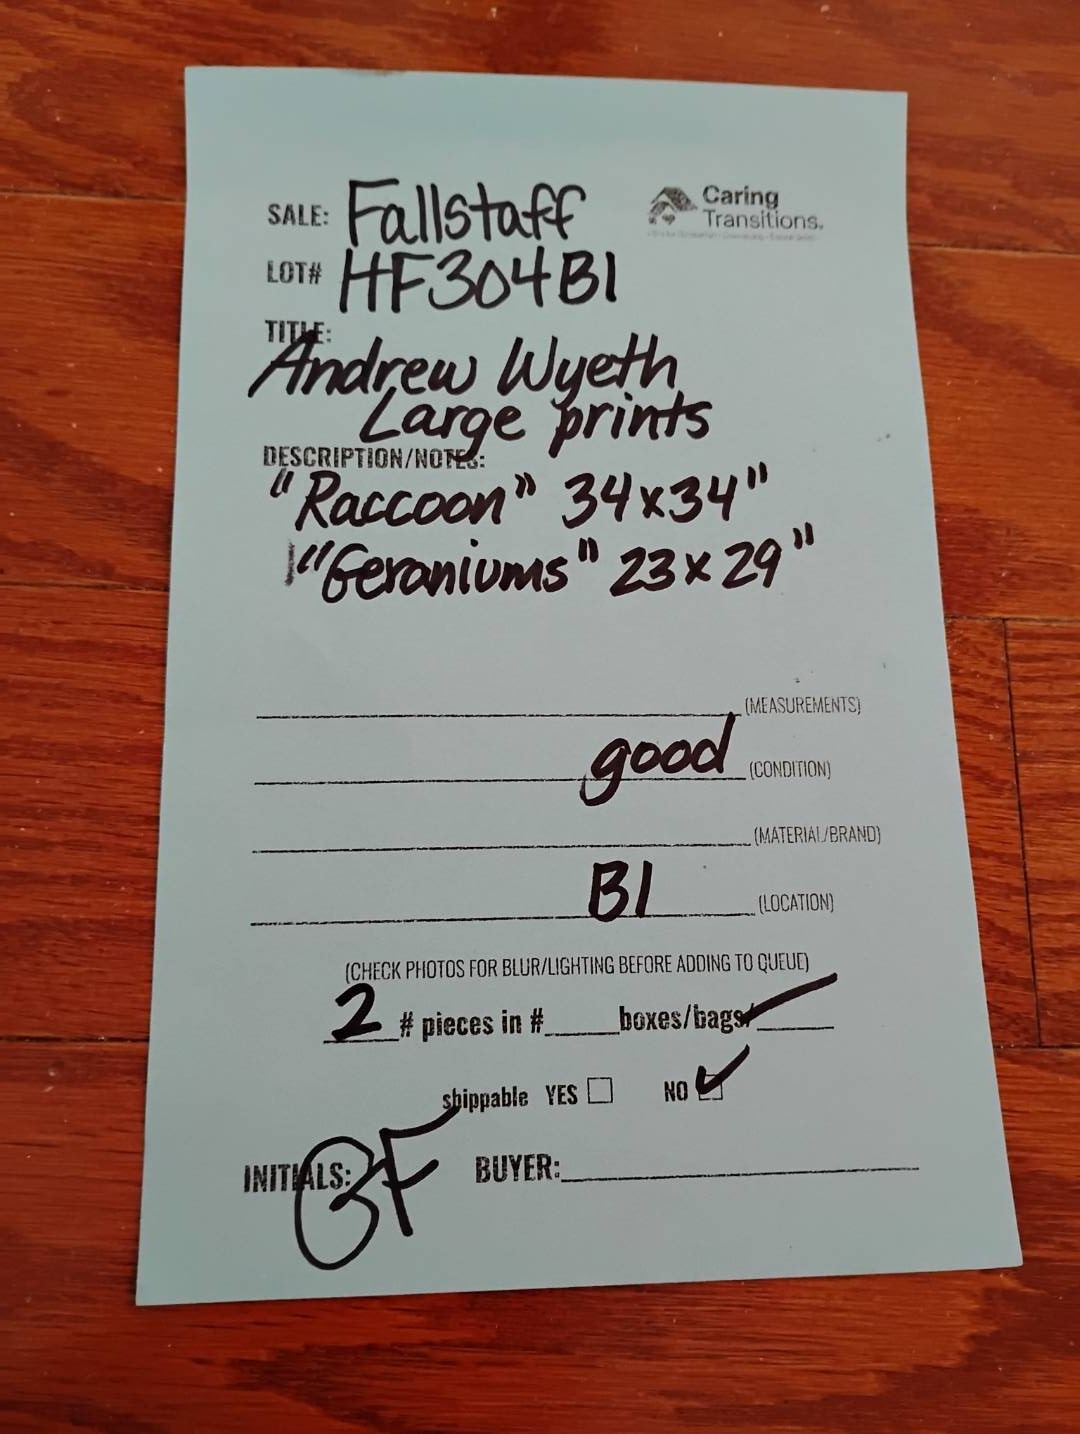 SALE: Fallstaff
Caring
Transitions.
LOT# HF304B1
TITLE:
Andrew Wyeth
Large prints
DESCRIPTION/NOTES:
"Raccoon" 34x34"
"Geraniums" 23x29"
(MEASUREMENTS)
good (CONDITION)
(MATERIAL/BRAND)
B1 (LOCATION)
(CHECK PHOTOS FOR BLUR/LIGHTING BEFORE ADDING TO QUEUE)
2 # pieces in #______boxes/bags/______
shippable YES ☐ NO ☑
INITIALS: GF BUYER: